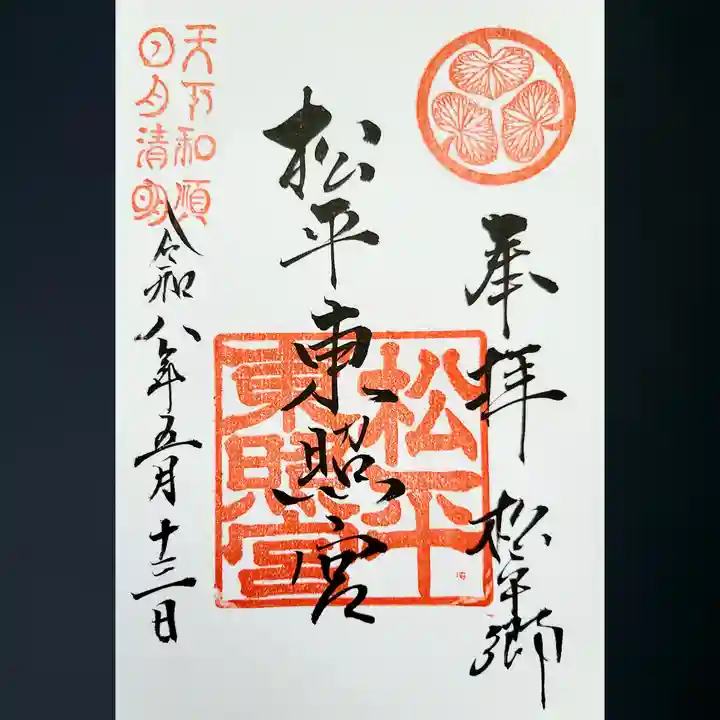 奉拝 松平郷
松平東照宮
松平
東照宮
令和八年五月十三日
天下和順
日月清明